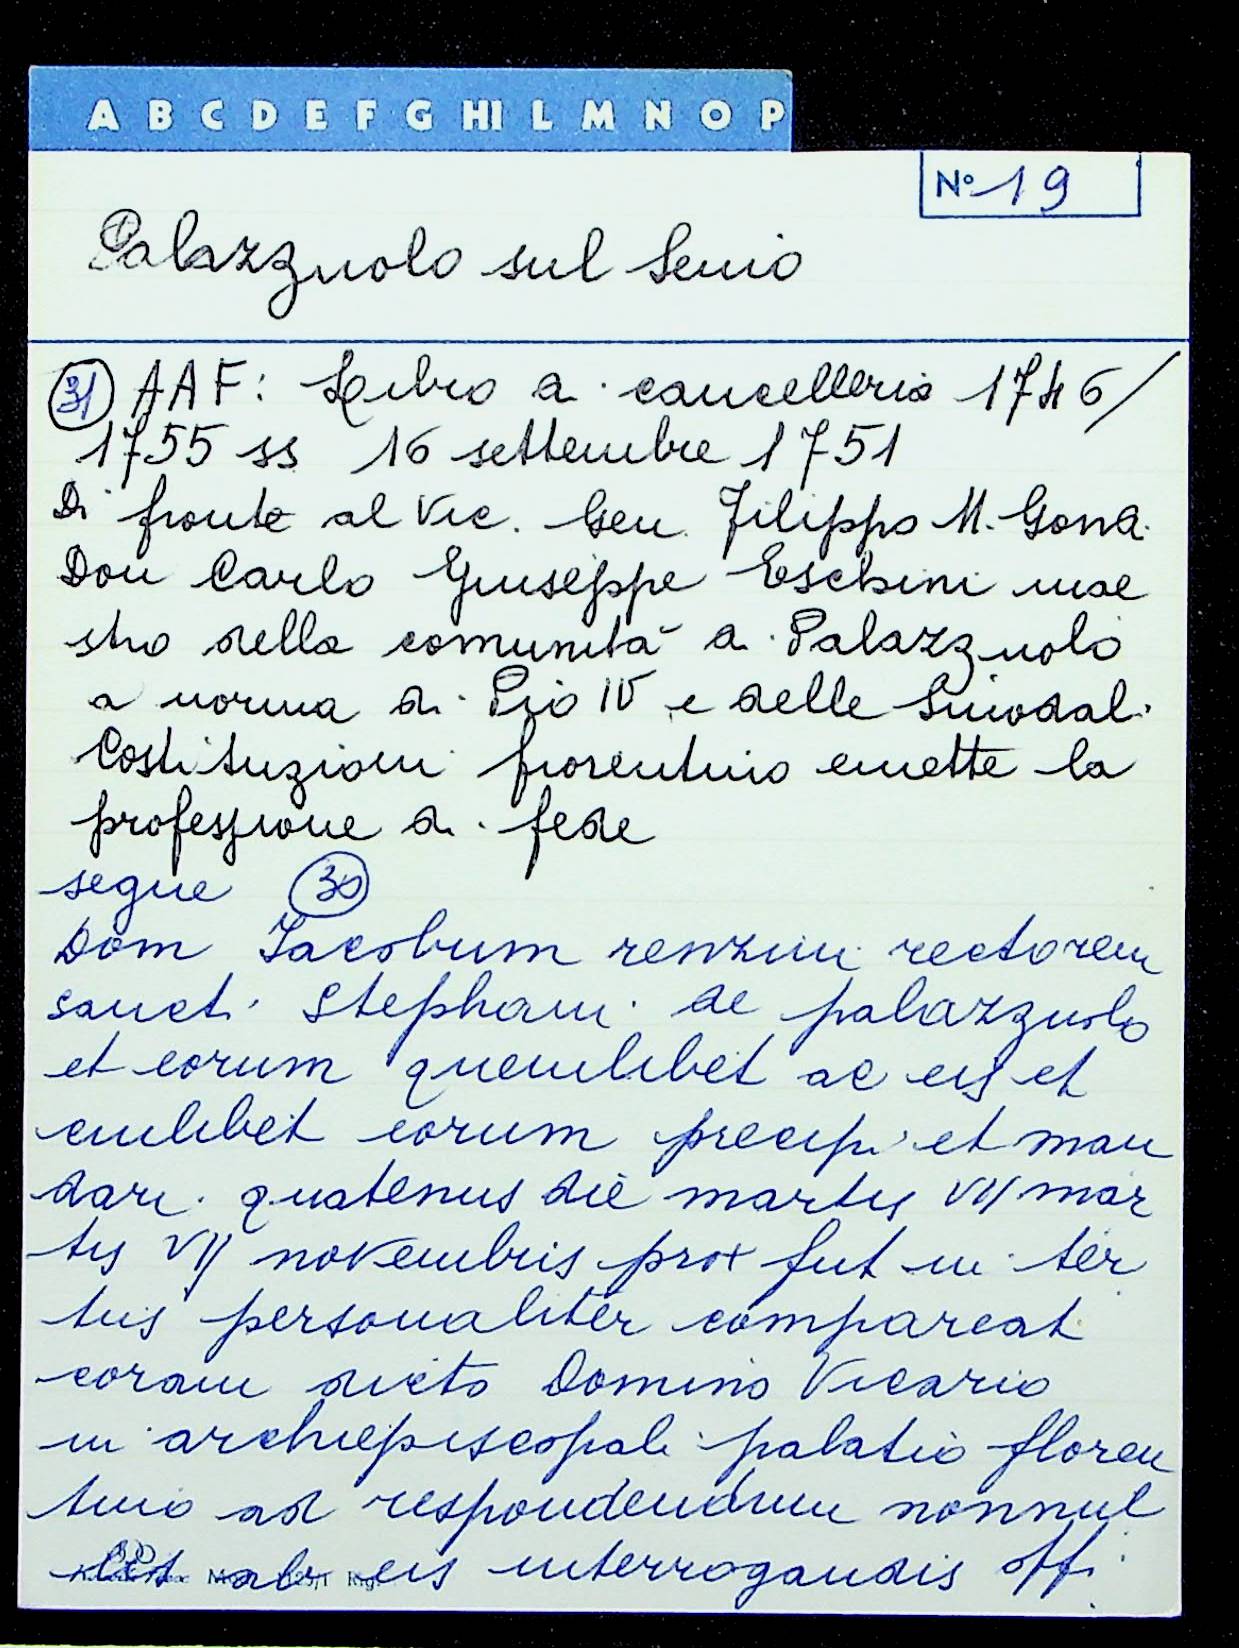 A B C D E F G HI L M N O P
N° 19
Palazzuolo sul Senio
31 AAF: Libro a cancelleria 1746/
1755 ss 16 settembre 1751
Di fronte al Vic. Gen. Filippo M.
Don Carlo Giuseppe Eschini mae
stro della comunità a Palazzuolo
a norma di Pio IV e delle Sinodali
Costituzioni fiorentino emette la
professione di fede
segue 30
Dom Iacobum renzini rectorem
sancti Stephani de palazzuolo
et eorum quemlibet ac eis et
cuilibet eorum precipi et man
dari quatenus die martis VII mar
tis VII novembris prox fut in ter
tiis personaliter compareat
coram dicto Domino Vicario
in archiepiscopali palatio floren
tino ad respondendum nonnul
ab eis interrogandis offi